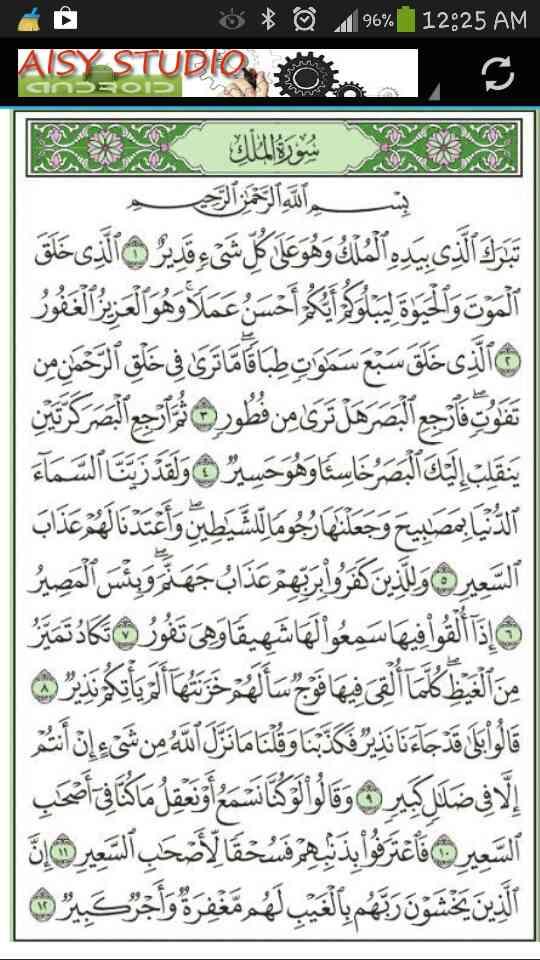 96% 12:25 AM
AISY STUDIO
ANDROID
سُورَةُ الْمُلْكِ
بِسْمِ ٱللَّهِ ٱلرَّحْمَٰنِ ٱلرَّحِيمِ
تَبَٰرَكَ ٱلَّذِى بِيَدِهِ ٱلْمُلْكُ وَهُوَ عَلَىٰ كُلِّ شَىْءٍ قَدِيرٌ ١ ٱلَّذِى خَلَقَ
ٱلْمَوْتَ وَٱلْحَيَوٰةَ لِيَبْلُوَكُمْ أَيُّكُمْ أَحْسَنُ عَمَلًا ۚ وَهُوَ ٱلْعَزِيزُ ٱلْغَفُورُ
٢ ٱلَّذِى خَلَقَ سَبْعَ سَمَٰوَٰتٍ طِبَاقًا ۖ مَّا تَرَىٰ فِى خَلْقِ ٱلرَّحْمَٰنِ مِن
تَفَٰوُتٍ ۖ فَٱرْجِعِ ٱلْبَصَرَ هَلْ تَرَىٰ مِن فُطُورٍ ٣ ثُمَّ ٱرْجِعِ ٱلْبَصَرَ كَرَّتَيْنِ
يَنقَلِبْ إِلَيْكَ ٱلْبَصَرُ خَاسِئًا وَهُوَ حَسِيرٌ ٤ وَلَقَدْ زَيَّنَّا ٱلسَّمَآءَ
ٱلدُّنْيَا بِمَصَٰبِيحَ وَجَعَلْنَٰهَا رُجُومًا لِّلشَّيَٰطِينِ ۖ وَأَعْتَدْنَا لَهُمْ عَذَابَ
ٱلسَّعِيرِ ٥ وَلِلَّذِينَ كَفَرُوا۟ بِرَبِّهِمْ عَذَابُ جَهَنَّمَ ۖ وَبِئْسَ ٱلْمَصِيرُ
٦ إِذَآ أُلْقُوا۟ فِيهَا سَمِعُوا۟ لَهَا شَهِيقًا وَهِىَ تَفُورُ ٧ تَكَادُ تَمَيَّزُ
مِنَ ٱلْغَيْظِ ۖ كُلَّمَآ أُلْقِىَ فِيهَا فَوْجٌ سَأَلَهُمْ خَزَنَتُهَآ أَلَمْ يَأْتِكُمْ نَذِيرٌ ٨
قَالُوا۟ بَلَىٰ قَدْ جَآءَنَا نَذِيرٌ فَكَذَّبْنَا وَقُلْنَا مَا نَزَّلَ ٱللَّهُ مِن شَىْءٍ إِنْ أَنتُمْ
إِلَّا فِى ضَلَٰلٍ كَبِيرٍ ٩ وَقَالُوا۟ لَوْ كُنَّا نَسْمَعُ أَوْ نَعْقِلُ مَا كُنَّا فِىٓ أَصْحَٰبِ
ٱلسَّعِيرِ ١٠ فَٱعْتَرَفُوا۟ بِذَنۢبِهِمْ فَسُحْقًا لِّأَصْحَٰبِ ٱلسَّعِيرِ ١١ إِنَّ
ٱلَّذِينَ يَخْشَوْنَ رَبَّهُم بِٱلْغَيْبِ لَهُم مَّغْفِرَةٌ وَأَجْرٌ كَبِيرٌ ١٢